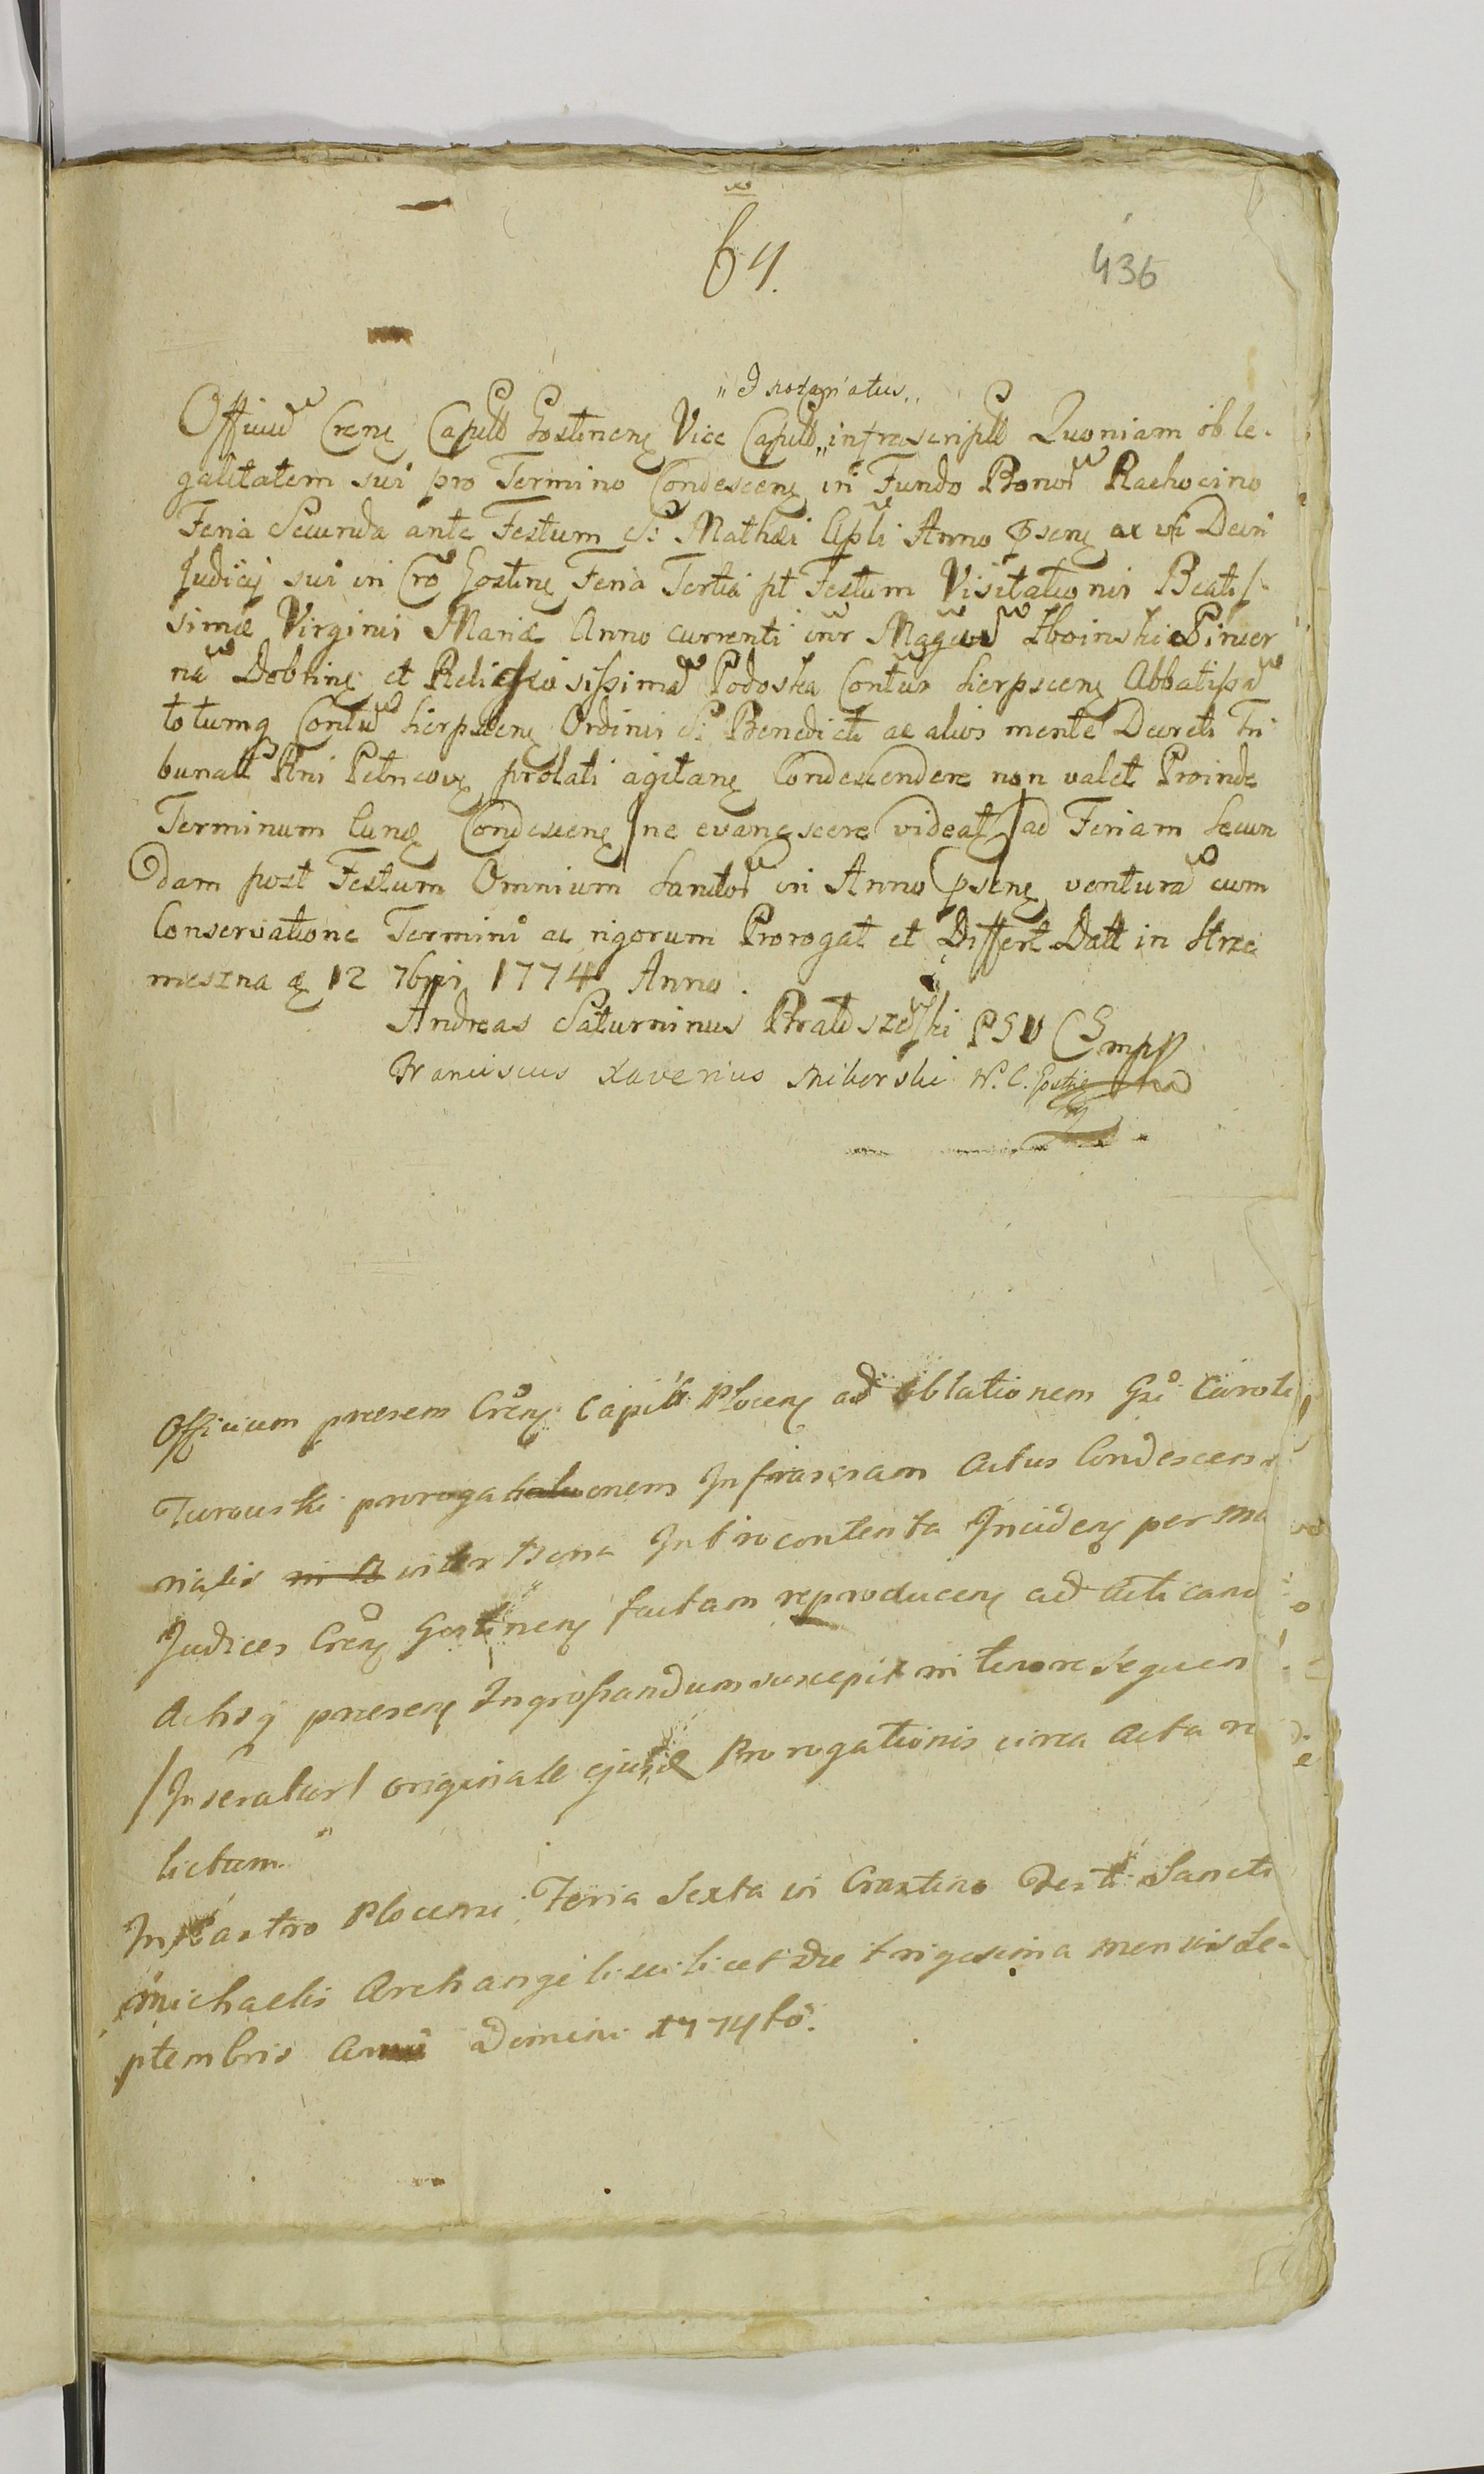 64.
436
„et Notariatus„
Officiu Crens Capitle Gostinens Vice Capitle „ infrascriptt Quoniam ob le-
galitatem sui pro Termino Condescens in Fundo Bonor Rachocino
Feria Secunda ante Festum S: Mathæi Apli Anno psens ac vi Decri
Judicij sui in Cro Gostins Feria Tertia pt Festum Visitationis Beatis-
simæ Virginis Mariæ Anno currenti intr Magcu Zboinski Pincer
na Dobrins et Religiosissima Podoska Contus Sierpscens Abbatissa
totumq Contu Sierpscens Ordinis S: Benedicti ac alios mente Decreti Tri
bunatt Rni Petricovs prolati agitans Condescendere non valet Proinde
Terminum Cuns Condescens / ne evanescere videat / ad Feriam Secun
dam post Festum Omnium Sanctor in Anno psens ventura cum
Conservatione Termini ac rigorum Prorogat et Differt Datt in Strze
meszna d 12 7bris 1774 Anno.
Andreas Saturninus PSV CG mpp
Franciscus Xaverius Miborski N. C. Gostins
Officium præsens Crens Capitle Plocens ad oblationem Gsi Caroli
Turowski prorogationem Infrascram Actus Condescens
rialis in B inter Bona Introcontenta Incidens per Ma
Judices Crens Gostinens factam reproducens ad Acticand
Actisq præsens Ingrossandum suscepit in tenore Sequen
/ Inseratur / originale ejusd Prorogationis circa Acta re
lictum
In Castro Plocensi Feria Sexta in Crastino Festi Sancti
Michaelis Archangeli scilicet die trigesima mensis Se-
ptembris Anno Domini 1774to.